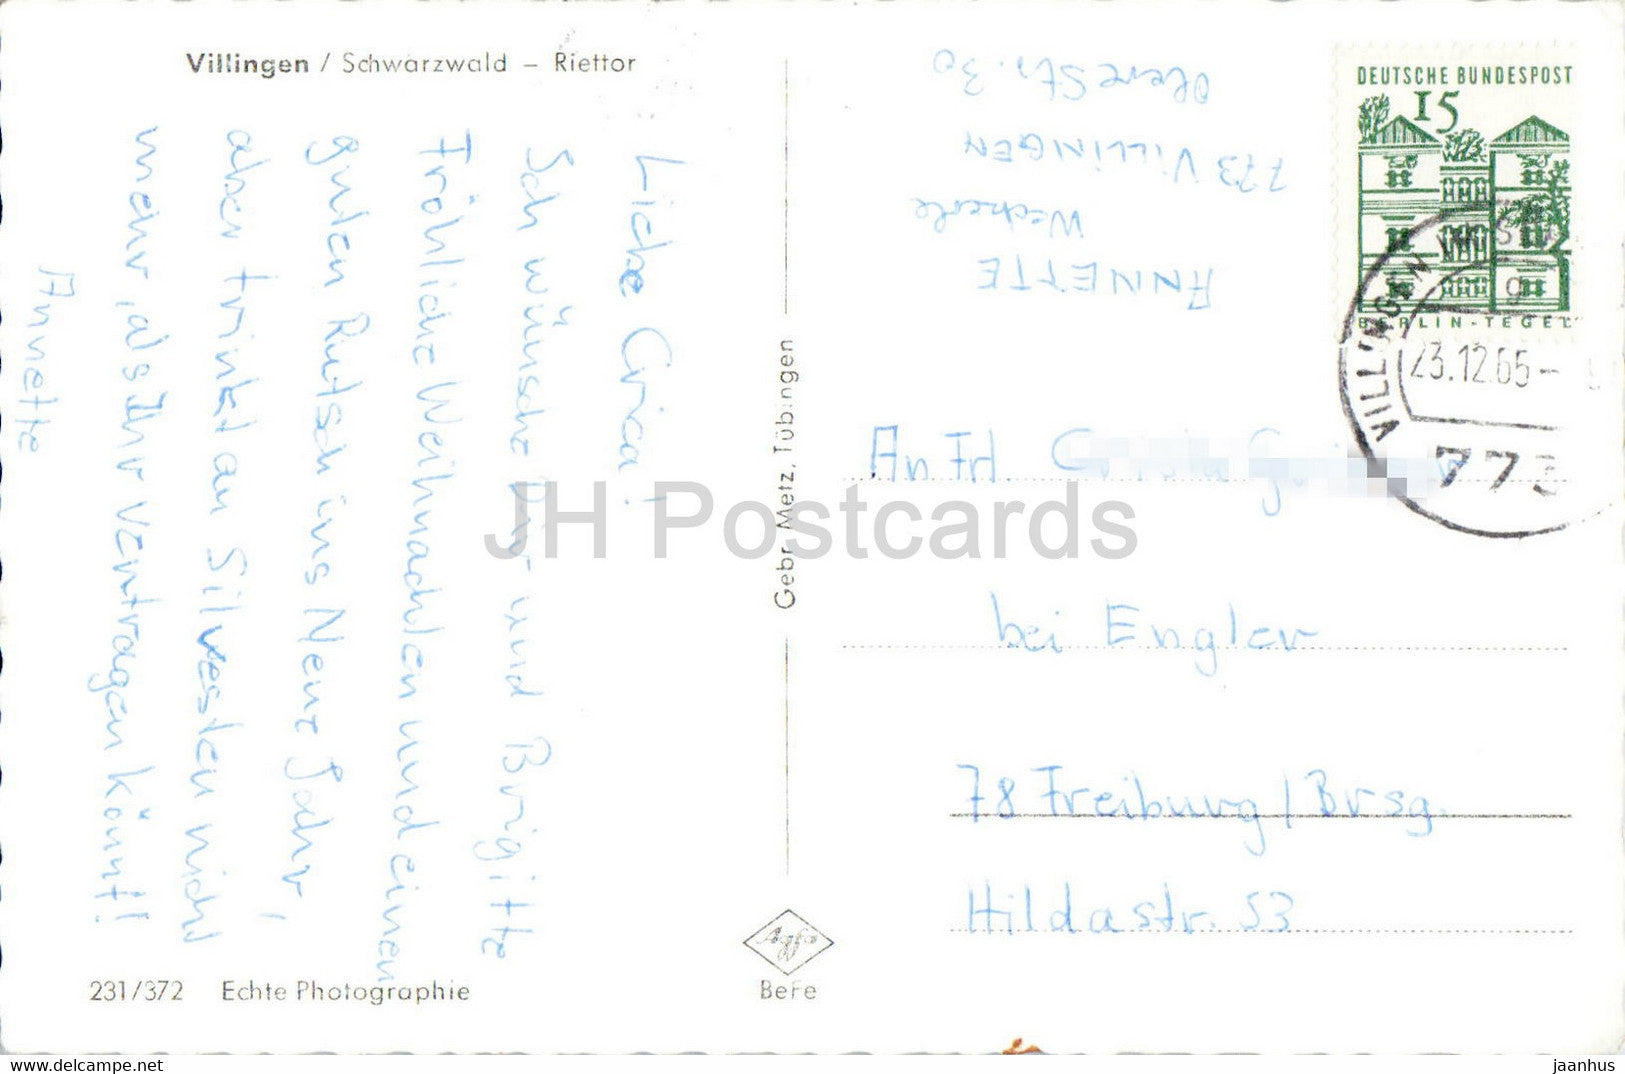 Villingen / Schwarzwald – Riettor
Liebe Crica!
Ich wünsche Dir und Brigitte
Fröhliche Weihnachten und einen
guten Rutsch ins Neue Jahr,
aber trinkt an Silvester nicht
mehr, als Ihr vertragen könnt!
Annette
231/372 Echte Photographie
Gebr. Metz, Tübingen
Agfa
BeFe
ANNETTE
Wecherle
773 VILLINGEN
Obere Str. 30
DEUTSCHE BUNDESPOST
15
BERLIN-TEGEL
VILLINGEN IM SCH
g
23.12.65-
773
An Frl.
bei Engler
78 Freiburg / Brsg.
Hildastr. 53
JH Postcards
jaanhus